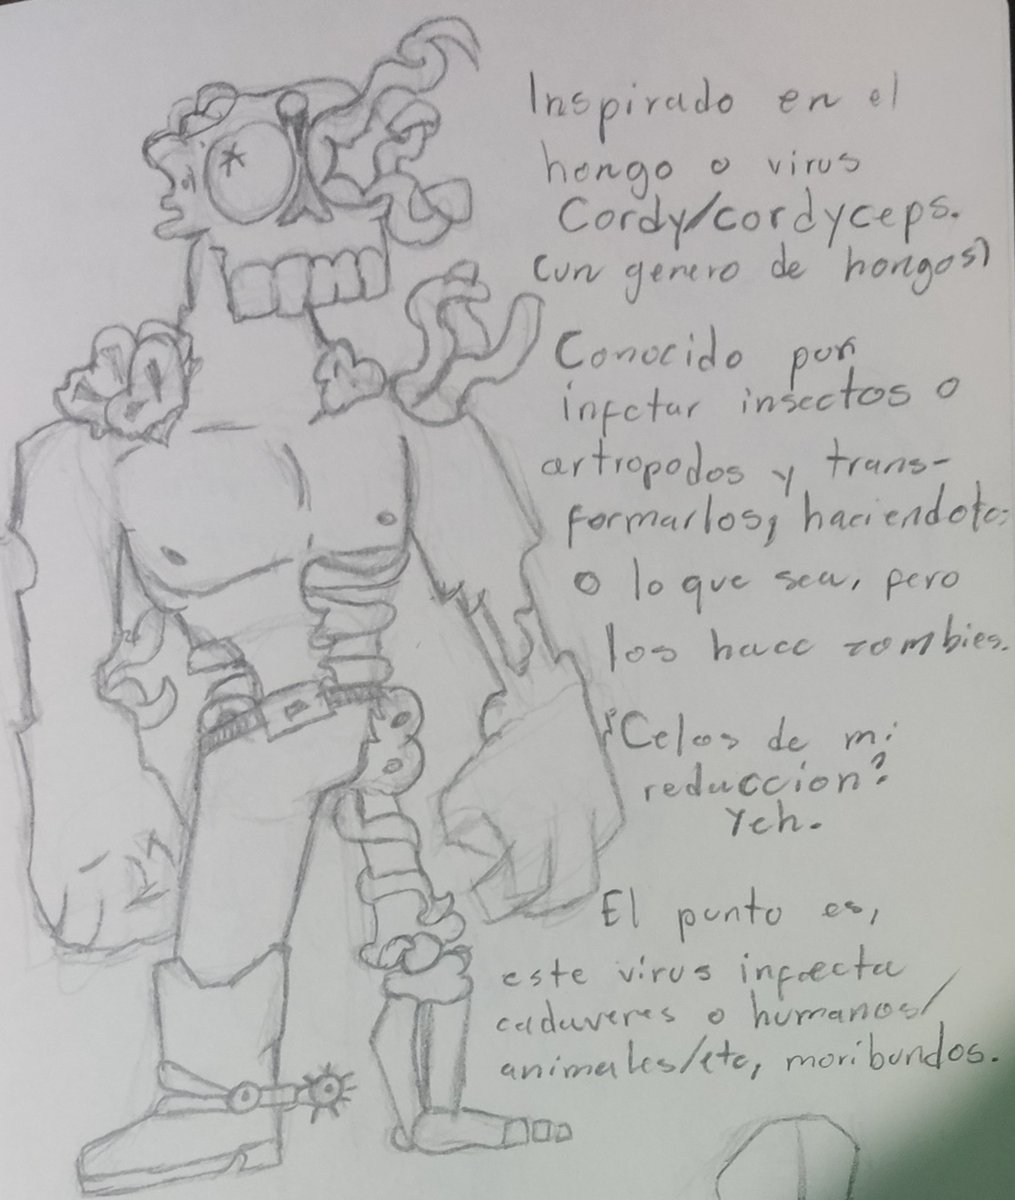 Inspirado en el
hongo o virus
Cordy/cordyceps.
(un genero de hongos)
Conocido por
infctar insectos o
artropodos y trans-
formarlos, haciendolo;
o lo que sea, pero
los hace zombies.
¿Celos de mi
reduccion?
Yeh.
El punto es,
este virus infecta
cadaveres o humanos/
animales/etc, moribundos.